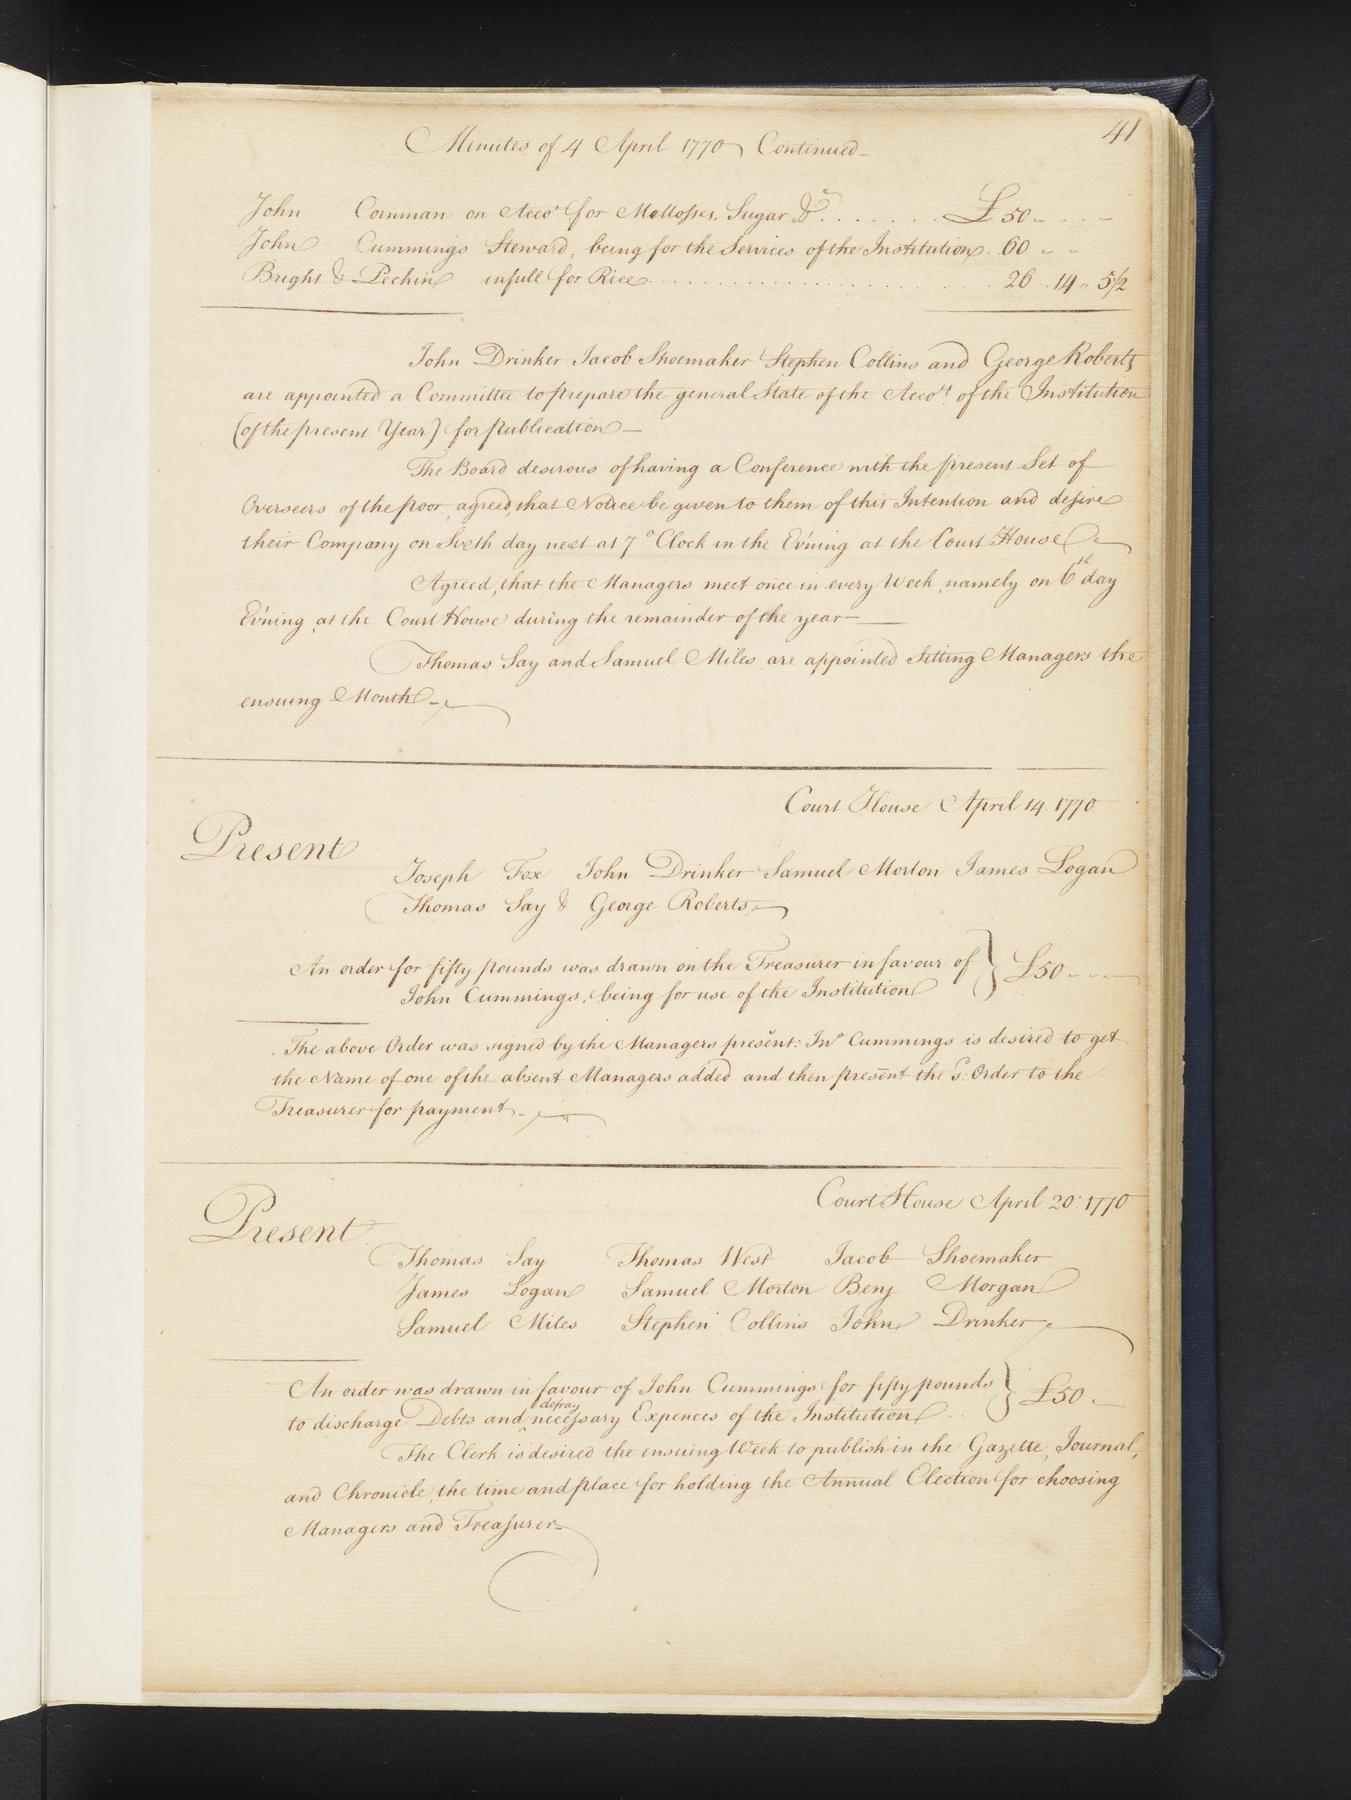 41
Minutes of 4 April 1770 Continued
John Cornman on Acco.t for Mollosses, Sugar &c ....... £ 50 - -
John Cummings Steward, being for the Services of the Institution . 60 - -
Bright & Pechin in full for Rice ............. 26 .. 14 .. 5 1/2
John Drinker Jacob Shoemaker Stephen Collins and George Roberts
are appointed a Committee to prepare the general State of the Acco.ts of the Institution
(of the present Year) for publication —
The Board desirous of having a Conference with the present Set of
Overseers of the poor, agreed, that Notice be given to them of this Intention and desire
their Company on Sixth day next at 7 o'Clock in the Ev'ning at the Court House
Agreed, that the Managers meet once in every Week, namely on 6th day
Ev'ning, at the Court House during the remainder of the year —
Thomas Say and Samuel Miles are appointed sitting Managers the
ensuing Month —
Court House April 14. 1770
Present
Joseph Fox John Drinker Samuel Morton James Logan
Thomas Say & George Roberts
An order for fifty pounds was drawn on the Treasurer in favour of } £50 - - -
John Cummings, being for use of the Institution
The above Order was signed by the Managers present: Jno Cummings is desired to get
the Name of one of the absent Managers added and then present the sd. Order to the
Treasurer for payment.
Court House April 20. 1770
Present
Thomas Say Thomas West Jacob Shoemaker
James Logan Samuel Morton Benj Morgan
Samuel Miles Stephen Collins John Drinker
An order was drawn in favour of John Cummings for fifty pounds } £50 -
defray
to discharge Debts and ^ necessary Expences of the Institution ..
The Clerk is desired the ensuing Week to publish in the Gazette, Journal,
and Chronicle, the time and place for holding the Annual Election for choosing
Managers and Treasurer